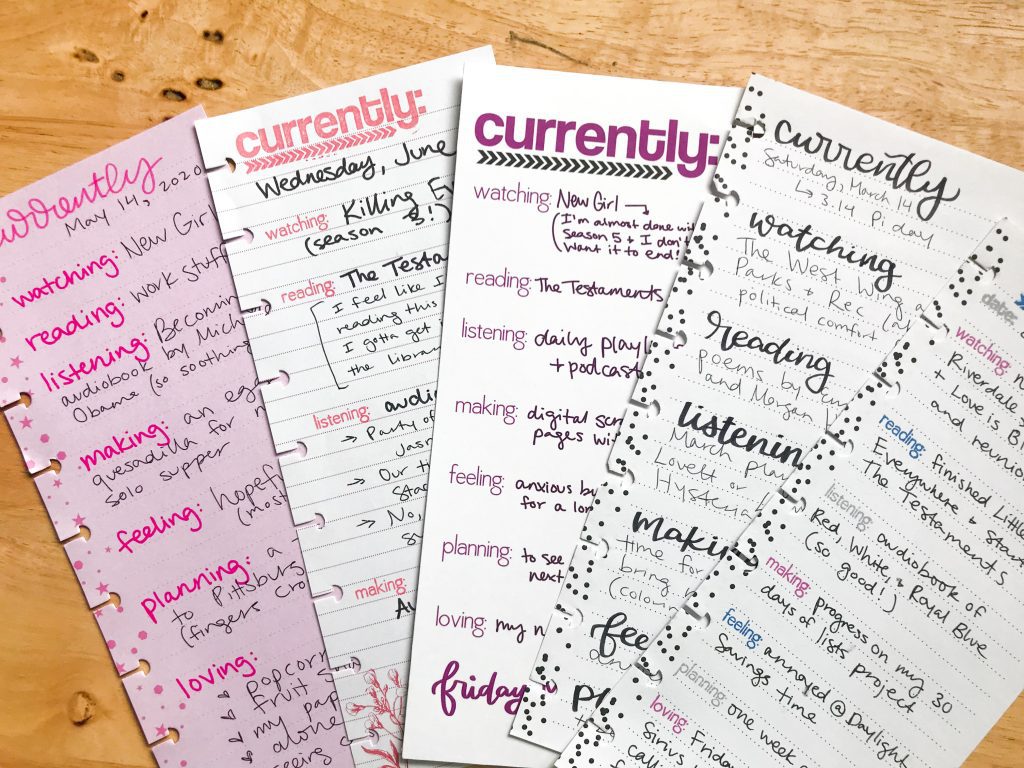 currently
May 14, 2020
watching: New Girl
reading: work stuff
listening: Becoming
audiobook by Mich
Obama (so soothing
making: an eg
quesadilla for
solo supper
feeling: hopef
(most
planning: a
to Pittsburg
(fingers cro
loving:
popcorn
fruit s
my pap
alone
currently:
Wednesday, June
watching: Killing Ev
(season 3!)
reading: The Testa
I feel like I
reading this
I gotta get i
the librar
listening: audio
→ Party of
Jasm
→ Our ti
Star
→ No,
making:
currently:
watching: New Girl →
(I'm almost done wi
season 5 + I don't
want it to end!
reading: The Testaments
listening: daily playli
+ podcast
making: digital scr
pages wi
feeling: anxious bu
for a lon
planning: to see
next
loving: my n
friday
currently
Saturday, March 14
↳ 3.14 Pi day
watching
The West Wing a
Parks + Rec (al
political comfort
reading
poems by
and Morgan
listenin
March play
Lovett or
Hysteria
makin
time for
bring
(colour
fee
an
pl
date:
watching:
Riverdale
+ Love is B
and reunion
reading: finished Little
Everywhere + Start
The Testaments
listening: audiobook of
Red, White, & Royal Blue
(so good!)
making: progress on my 30
days of lists project
feeling: annoyed @ Daylight
Savings time
planning: one week
loving: Friday
Sirius
call